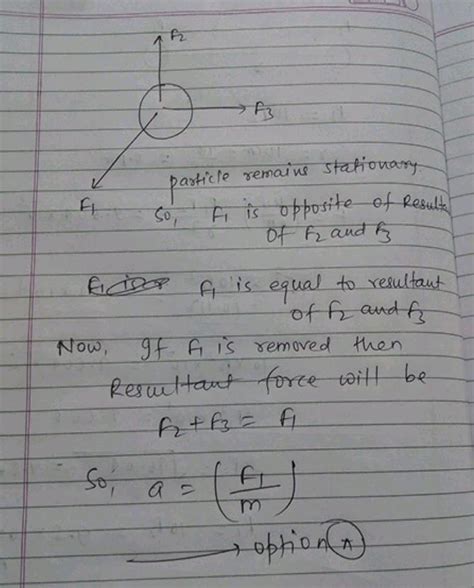 F2
F3
F1
particle remains stationary
So, F1 is opposite of Resulta
of F2 and F3
F1 is equal to resultant
of F2 and F3
Now, If F1 is removed then
Resultant force will be
F2 + F3 = F1
So, a = (F1/m)
→ option A